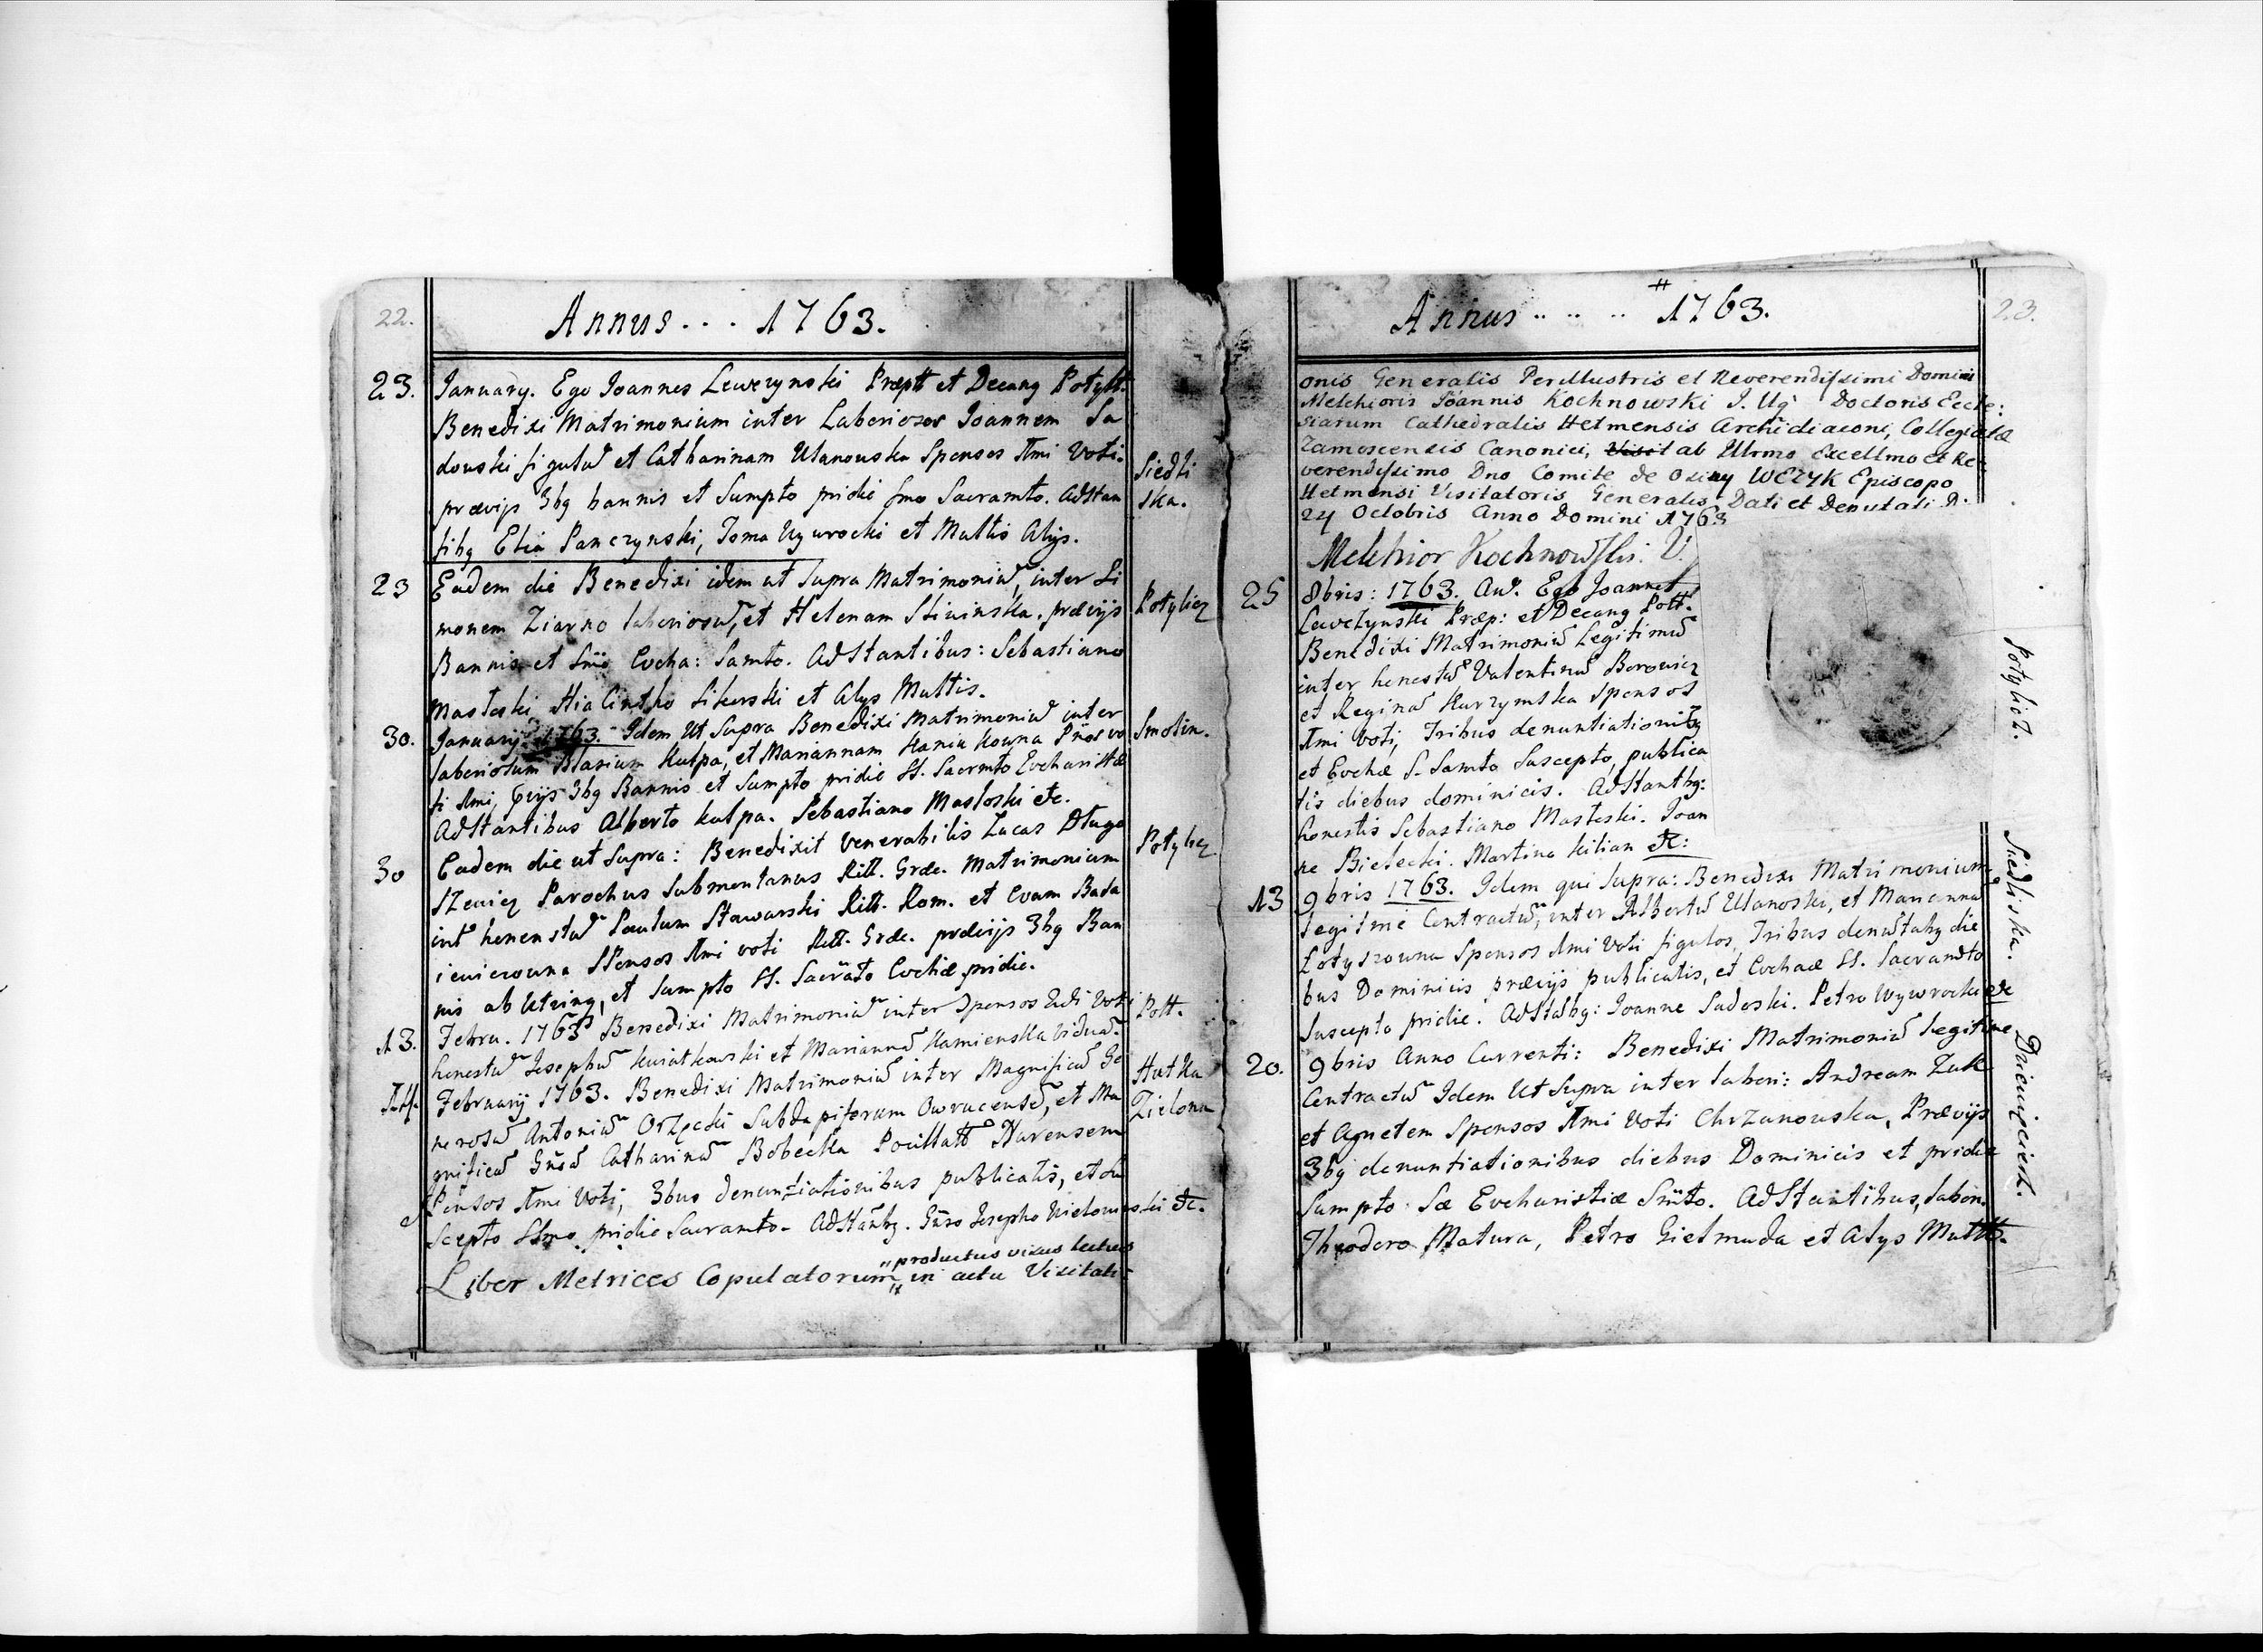 22.
Annus... 1763.
23. January. Ego Joannes Lewezynski Præptt et Decang Potyltt.
Benedixi Matrimonium inter Laboriosos Joannem Sa
douski figulũ et Catharinam Ulanouska Sponsos Ai͠mi Voti.
prævijs 3bg bannis et Sumpto pridie Smo Sacramto. Adstan
tibg Elia Panczynski, Toma Uywrocki et Multis Alijs.
Siedli
ska.
23 Eadem die Benedixi idem ut Supra Matrimoniũ, inter Si
monem Ziarno laboriosũ, et Helenam Sliwinska. prævijs
Bannis et Smo Eucha: Samto. AdStantibus: Sebastiano
Masloski, HiaCintho Sikorski et Alys Multis.
Potylicz
30. January 1763. Idem Ut Supra Benedixi Matrimoniũ inter
laboriosum Blasium Kulpa, et Mariannam Hania Kowna
ti Ai͠mi, 3bg Bannis et Sumpto pridie SS. Sacrmto Evcharistiæ
AdStantibus Alberto Kulpa. Sebastiano Masloski etc.
Smolin.
30 Eadem die ut Supra: Benedixit Venerabilis Lucas Dlugo
Szewicz Parochus Submontanus Ritt. Græ. Matrimonium
int honestũ Paulum Stawarski Ritt. Rom. et Evam Basa
iewiczowna SPonsos Ai͠mi voti Ritt. Græ. prævijs 3bg Ban
nis ab Utring, et Sumpto SS. Sacrãto Evchæ pridie.
Potylicz
13. Febru. 1763 Benedixi Matrimoniũ inter Sponsos 2di Voti
honestũ Josephũ Kwiatkowski et Mariannã Kamienska Viduã.
Pott.
14. February 1763. Benedixi Matrimoniũ inter Magnificũ Ge
nerosũ Antoniũ Orzęcki Subdapiferum Owrucensẽ, et Ma
gnificã Gñsã Catharinã Bobecka
SPonsos Ai͠mi Voti, 3bus denuntiationibus publicatis, et su
scepto SSmo pridie Sacramto. AdStantbg. Gñso Josepho Uielowieski etc.
Hutka
Zielona
"productus visus lectus
Liber Metrices Copulatorum " in actu Visitati-
23.
Annus .. .. .. 1763.
onis Generalis Perillustris et Reverendissimi Domini
Melchioris Joannis Kochnowski J. Ug Doctoris Eccle:
siarum Cathedralis Helmensis Archidiaconi, Collegiatæ
Zamoscensis Canonici, Visit ab Illrmo Excellmo et Re-
verendissimo Dno Comite de Osiny WĘZYK Episcopo
Helmensi Visitatoris Generalis Dati et Deputati D.
24 Octobris Anno Domini 1763
Melchior Kochnowski. V.
25 8bris: 1763. An. Ego Joannes
Lewezynski Præp: et Decang Pott.
Benedixi Matrimoniũ Legitimũ
inter honestũ Valentinũ Borowicz
et Reginã Kurzymska Sponsos
Ai͠mi Voti, Tribus denuntiationibg
et Evchæ S. Samto Suscepto, publica
tis diebus dominicis. AdStantbg:
honestis Sebastiano Masloski. Joan
ne Bielecki. Martino Kilian etc:
Potylicz.
13 9bris 1763. Idem qui Supra: Benedixi Matrimonium
legitime Contractũ, inter Albertũ Ulanoski, et Mariannã
Lotyszowna Sponsos Ai͠mi Voti figulos, Tribus die
bus Dominicis prævijs publicatis, et Evchæ SS. Sacramto
Suscepto pridie. AdStãbg: Joanne Sadoski. Petro Wywrocki etc
Siedliska.
20. 9bris Anno Currenti: Benedixi Matrimoniũ Legitime
Contractũ Idem Ut Supra inter labori: Andream Zuk
et Agnetem Sponsos Ai͠mi Voti Chrzanouska, Prævijs
3bg denuntiationibus diebus Dominicis et pridie
Sumpto Sæ Evcharistiæ Smto. AdStantibus, labori.
Theodoro Matura, Petro Gielmuda et Alys Multt.
Dziewięcierz.